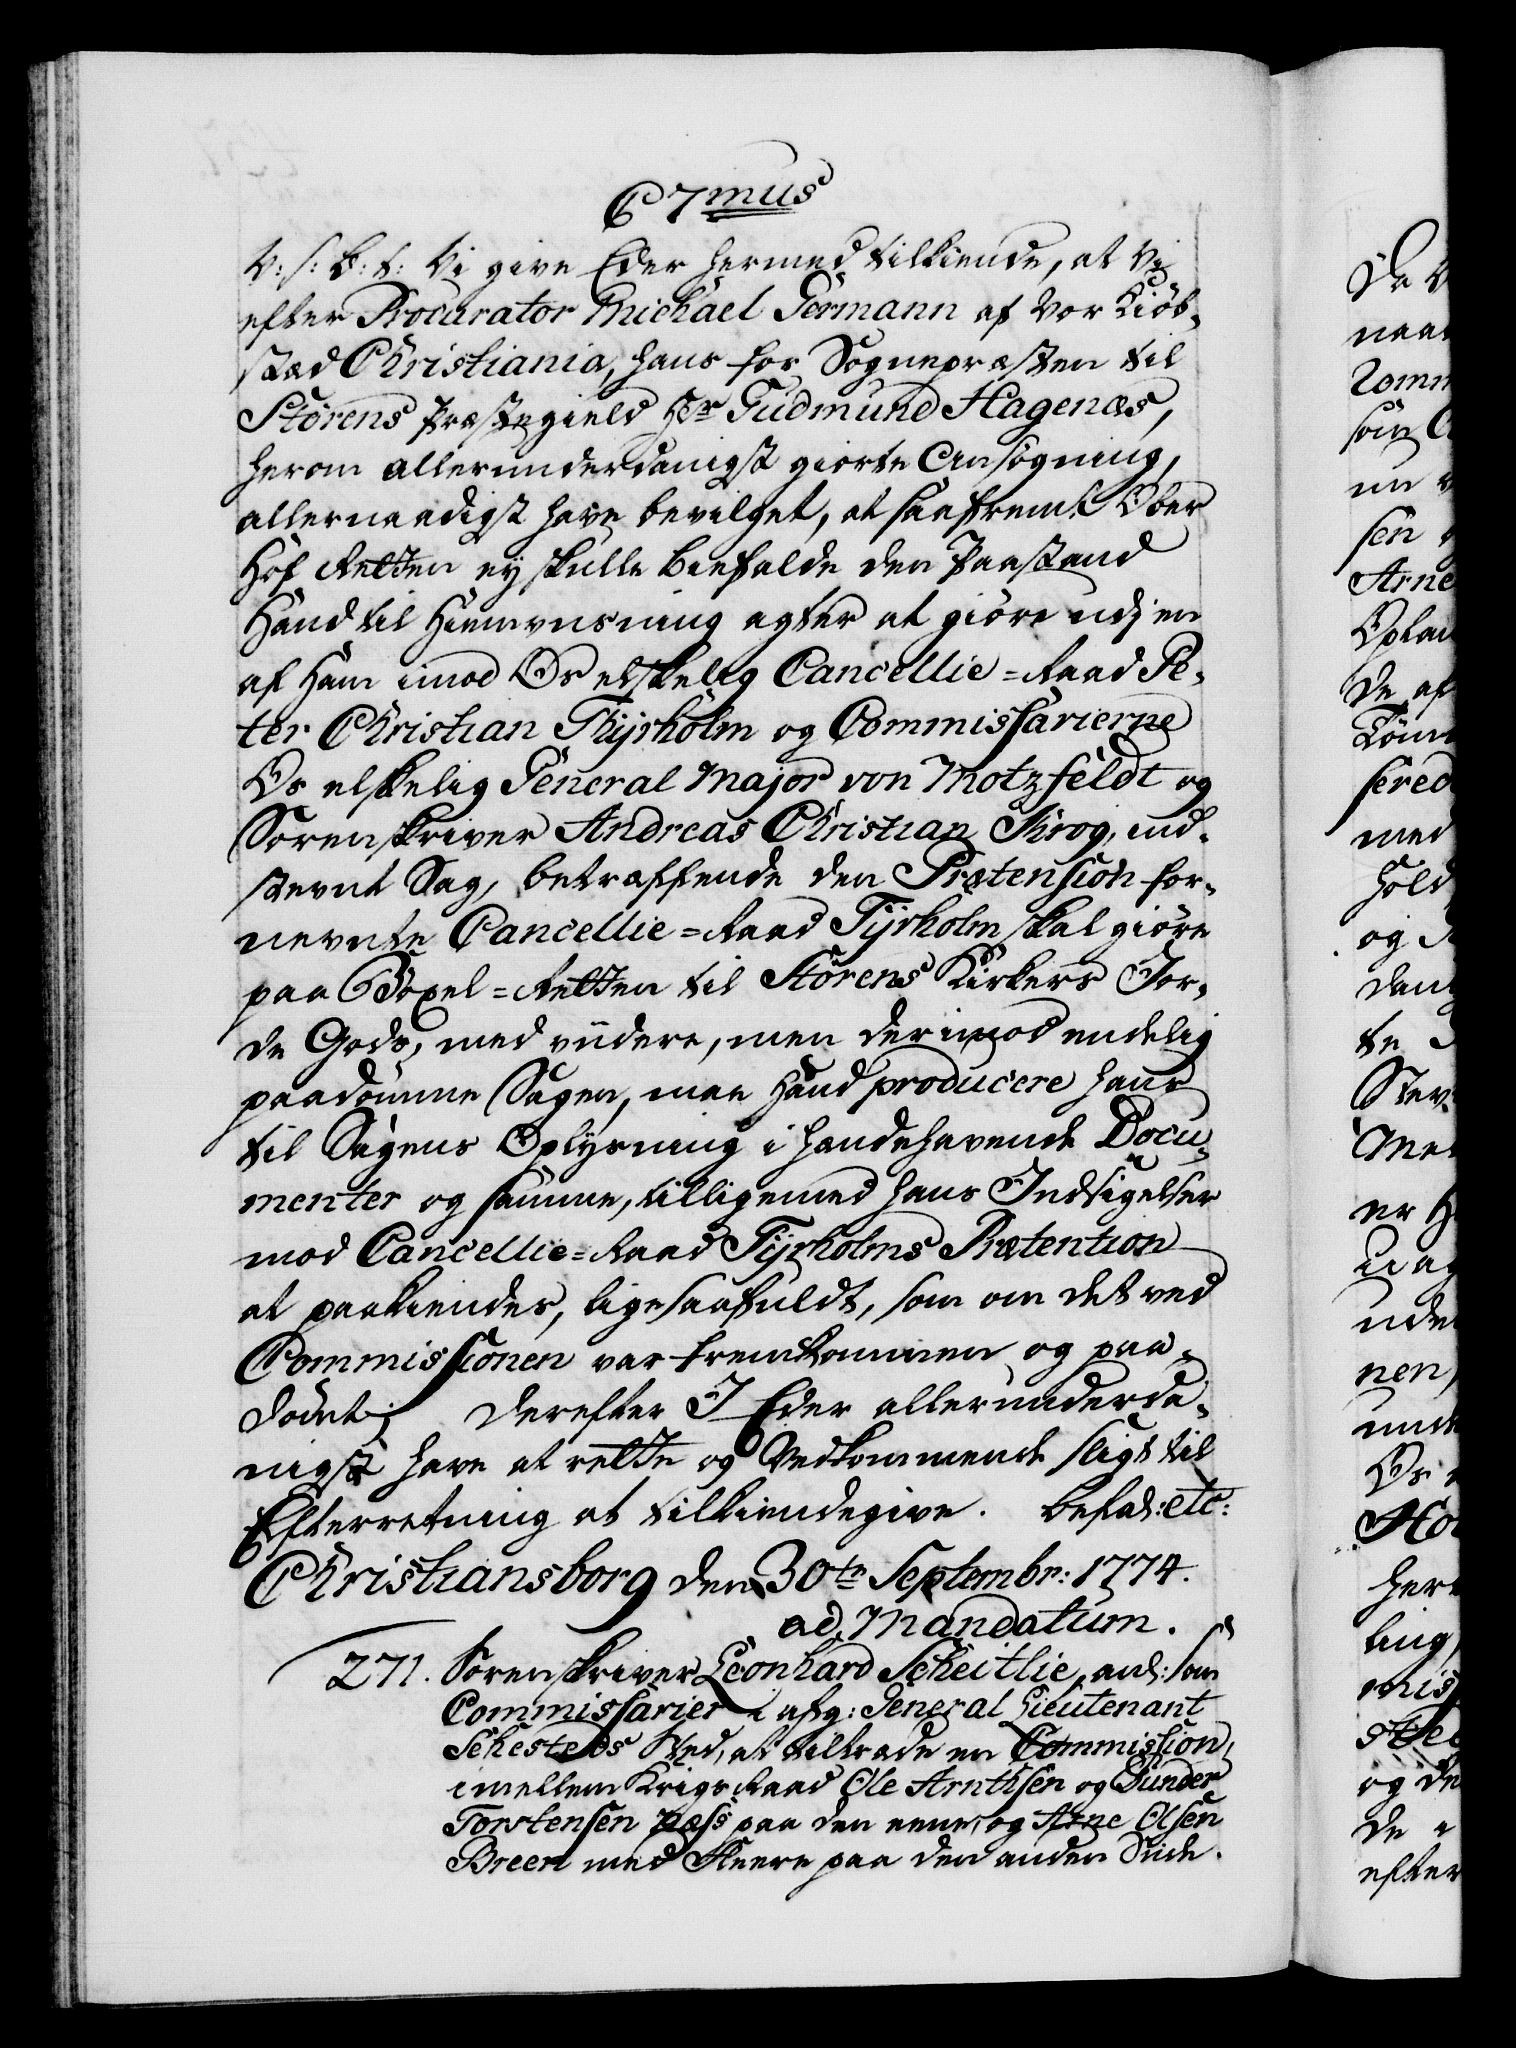 C7mus
V: s: B: t: Vi give Eder hermed tilkiende, at Vi
efter Procurator Michael Germann af Vor Kiöb-
stæd Christiania, hans for Sognepræsten til
Störens Præstegield Hr Gudmund Hagenæs,
herom allerunderdanigst giorte Ansögning,
allernaadigst have bevilget, at saafremt Ober
Hof Retten ey skulle biefalde den Paastand
Hand til Hiemviisning agter at giöre udj en
af Ham imod Os elskelig Cancellie-Raad Pe-
ter Christian Thyrholm og Commissarierne
Os elskelig General Major von Motzfeldt og
Sorenskriver Andreas Christian Krog, ind-
stevnt Sag, betræffende den Prætension for-
nevnte Cancellie-Raad Tyrholm skal giöre
paa Böxel-Retten til Störens Kirkers Jor-
de Gods, med viidere, men derimod endelig
paadömme Sagen, maa Hand producere hans
til Sagens Oplysning i hændehavende Docu-
menter og samme, tilligemed hans Indsigelser
mod Cancellie-Raad Tyrholms Prætention
at paakiendes, ligesaafuldt, som om det ved
Commissionen var fremkommen og paa-
dödet; Derefter I Eder allerunderda-
nigst have at rette og Vedkommende sligt til
Efterretning at tilkiendegive. Befal: etc:
Christiansborg den 30te Septembr: 1774.
ad Mandatum.
271. Sorenskriver Leonhard Scheitlie, anl: som
Commissarier i afg: General Lieutenant
Schesteds Sted, at tiltræde en Commission,
imellem Krigs Raad Ole Arntsen og Gunder
Torstensen Næss paa den eene, og Arne Olsen
Breen med Fleere paa den anden Side.
De
naa
Comm
som
nu
sen
Arne
Optan
de af
med
hold
og
te
Stev
er H
uden
nen,
Os
Ho
her
ling,
mis
og de
de
efter